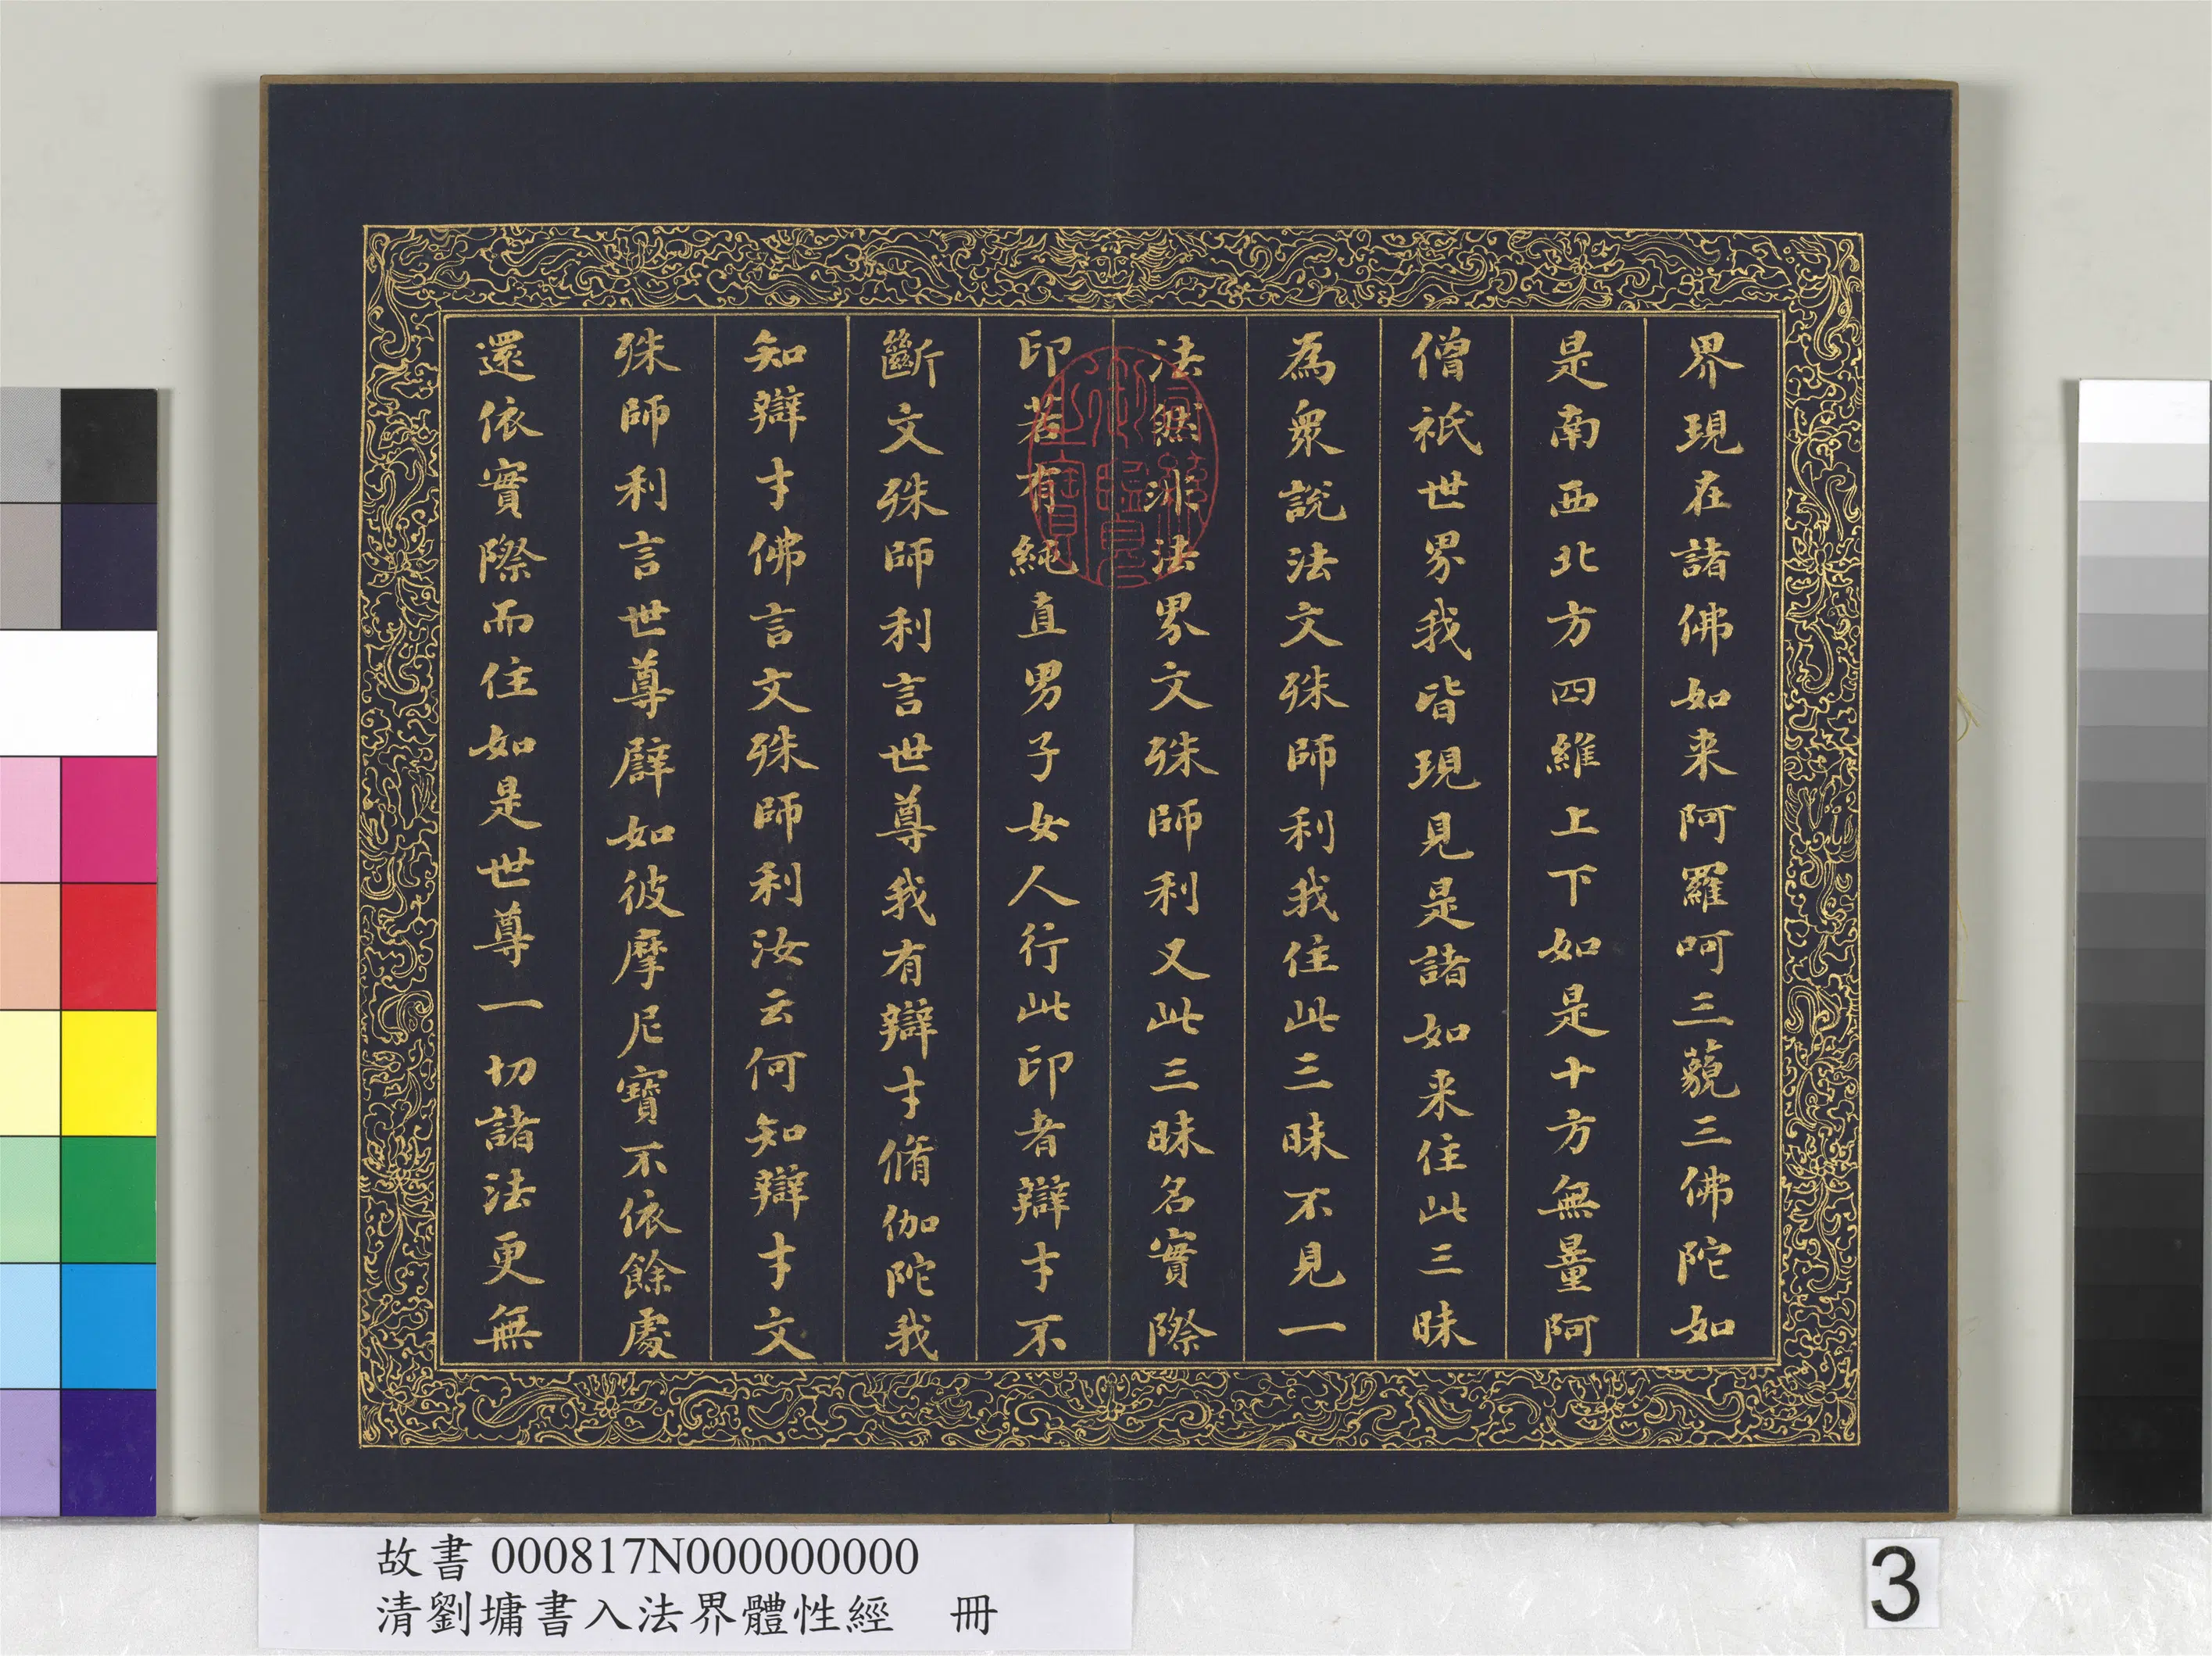 界現在諸佛如来阿羅呵三藐三佛陀如
是南西北方四維上下如是十方無量阿
僧祇世界我皆現見是諸如来住此三昧
為衆說法文殊師利我住此三昧不見一
法然非法界文殊師利又此三昧名實際
印若有純直男子女人行此印者辯才不
斷文殊師利言世尊我有辯才脩伽陀我
知辯才佛言文殊師利汝云何知辯才文
殊師利言世尊譬如彼摩尼寶不依餘處
還依實際而住如是世尊一切諸法更無
故書 000817N000000000
清劉墉書入法界體性經 冊
3